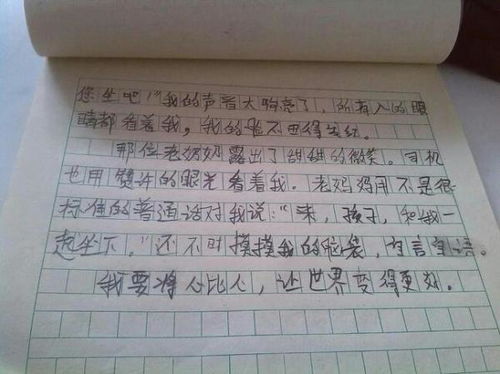 您坐吧!"我的声音大响亮了，所有人的眼
睛都看着我，我的脸不由得发红。
那位老奶奶露出了甜甜的微笑。司机
也用赞许的眼光看着我。老奶奶用不是很
标准的普通话对我说："来，孩子，和我一
起坐下。"还不时摸摸我的脑袋，自言自语。
我要将心比心，让世界变得更好。